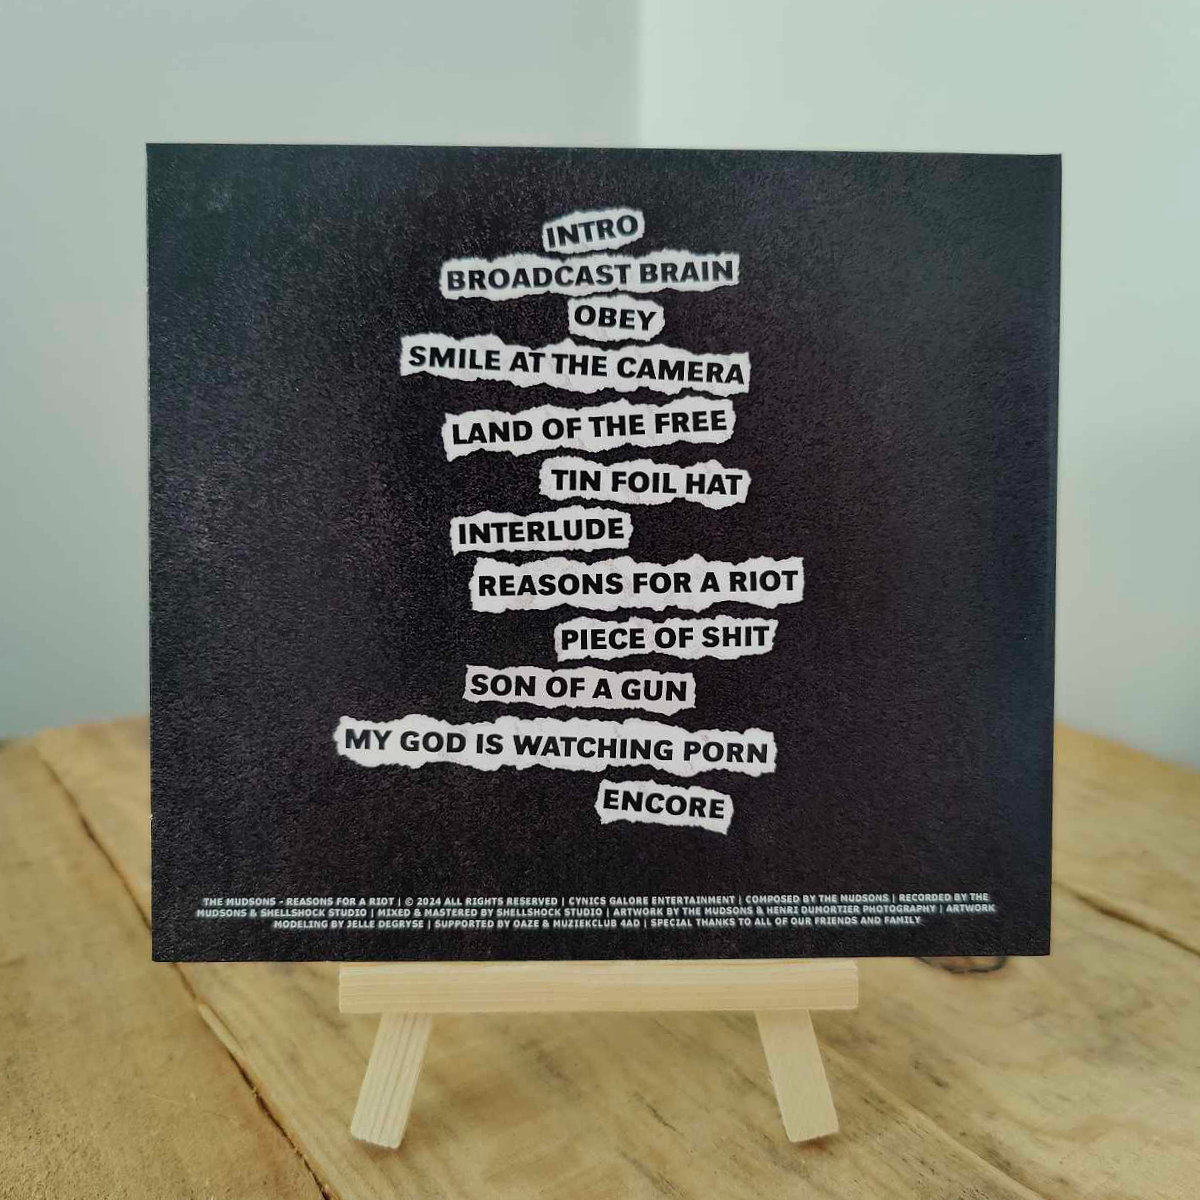 INTRO
BROADCAST BRAIN
OBEY
SMILE AT THE CAMERA
LAND OF THE FREE
TIN FOIL HAT
INTERLUDE
REASONS FOR A RIOT
PIECE OF SHIT
SON OF A GUN
MY GOD IS WATCHING PORN
ENCORE
THE MUDSONS - REASONS FOR A RIOT | © 2024 ALL RIGHTS RESERVED | CYNICS GALORE ENTERTAINMENT | COMPOSED BY THE MUDSONS | RECORDED BY THE
MUDSONS & SHELLSHOCK STUDIO | MIXED & MASTERED BY SHELLSHOCK STUDIO | ARTWORK BY THE MUDSONS & HENRI DUMORTIER PHOTOGRAPHY | ARTWORK
MODELING BY JELLE DEGRYSE | SUPPORTED BY OAZE & MUZIEKCLUB 4AD | SPECIAL THANKS TO ALL OF OUR FRIENDS AND FAMILY